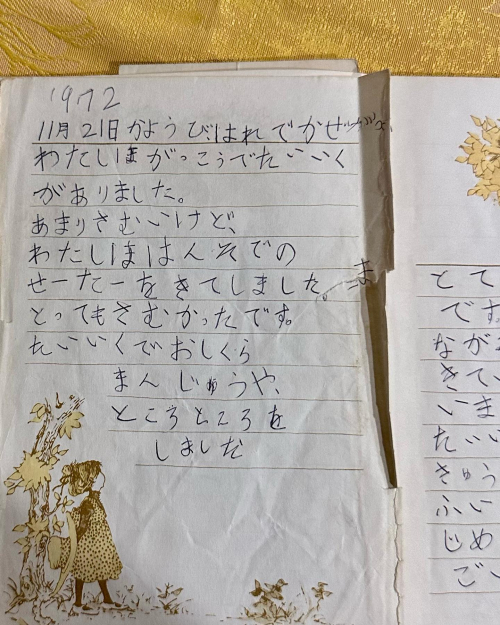 1972
11月21日かようび、はれでかぜ
わたしはがっこうでたいいく
がありました。
あまりさむいけど、
わたしははんそでの
せーたーをきてしました。
とってもさむかったです。
たいいくでおしくら
まんじゅうや、
ところところを
しました
ま
とて
です
なが
きて
いま
たい
きゅう
ふい
じめ
ご